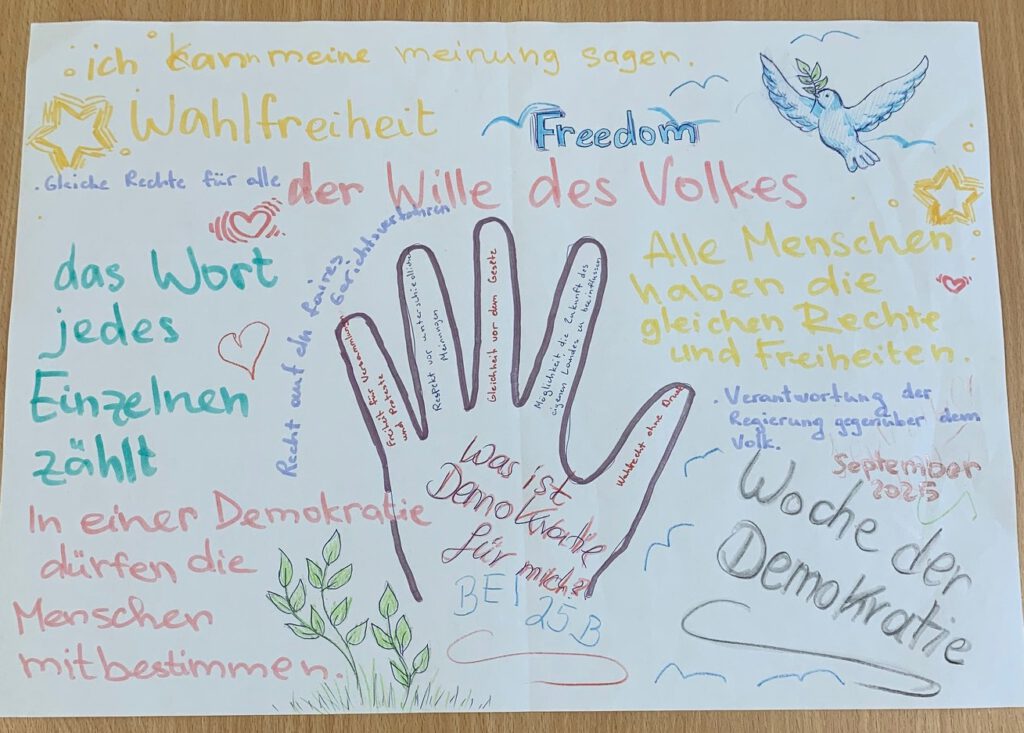 ich kann meine meinung sagen.
Wahlfreiheit
Freedom
. Gleiche Rechte für alle
der Wille des Volkes
das Wort
jedes
Einzelnen
zählt
Recht auf ein faires
Gerichtsverfahren
Alle Menschen
haben die
gleichen Rechte
und Freiheiten.
. Verantwortung der
Regierung gegenüber dem
Volk.
September
2025
Freiheit für Versammlungen
und Proteste
Respekt vor unterschiedlichen
Meinungen
Gleichheit vor dem Gesetz
Möglichkeit, die Zukunft des
eigenen Landes zu beeinflussen
Wahlrecht ohne Druck
Was ist
Demokratie
für mich?
BEI
25B
In einer Demokratie
dürfen die
Menschen
mitbestimmen.
Woche der
Demokratie